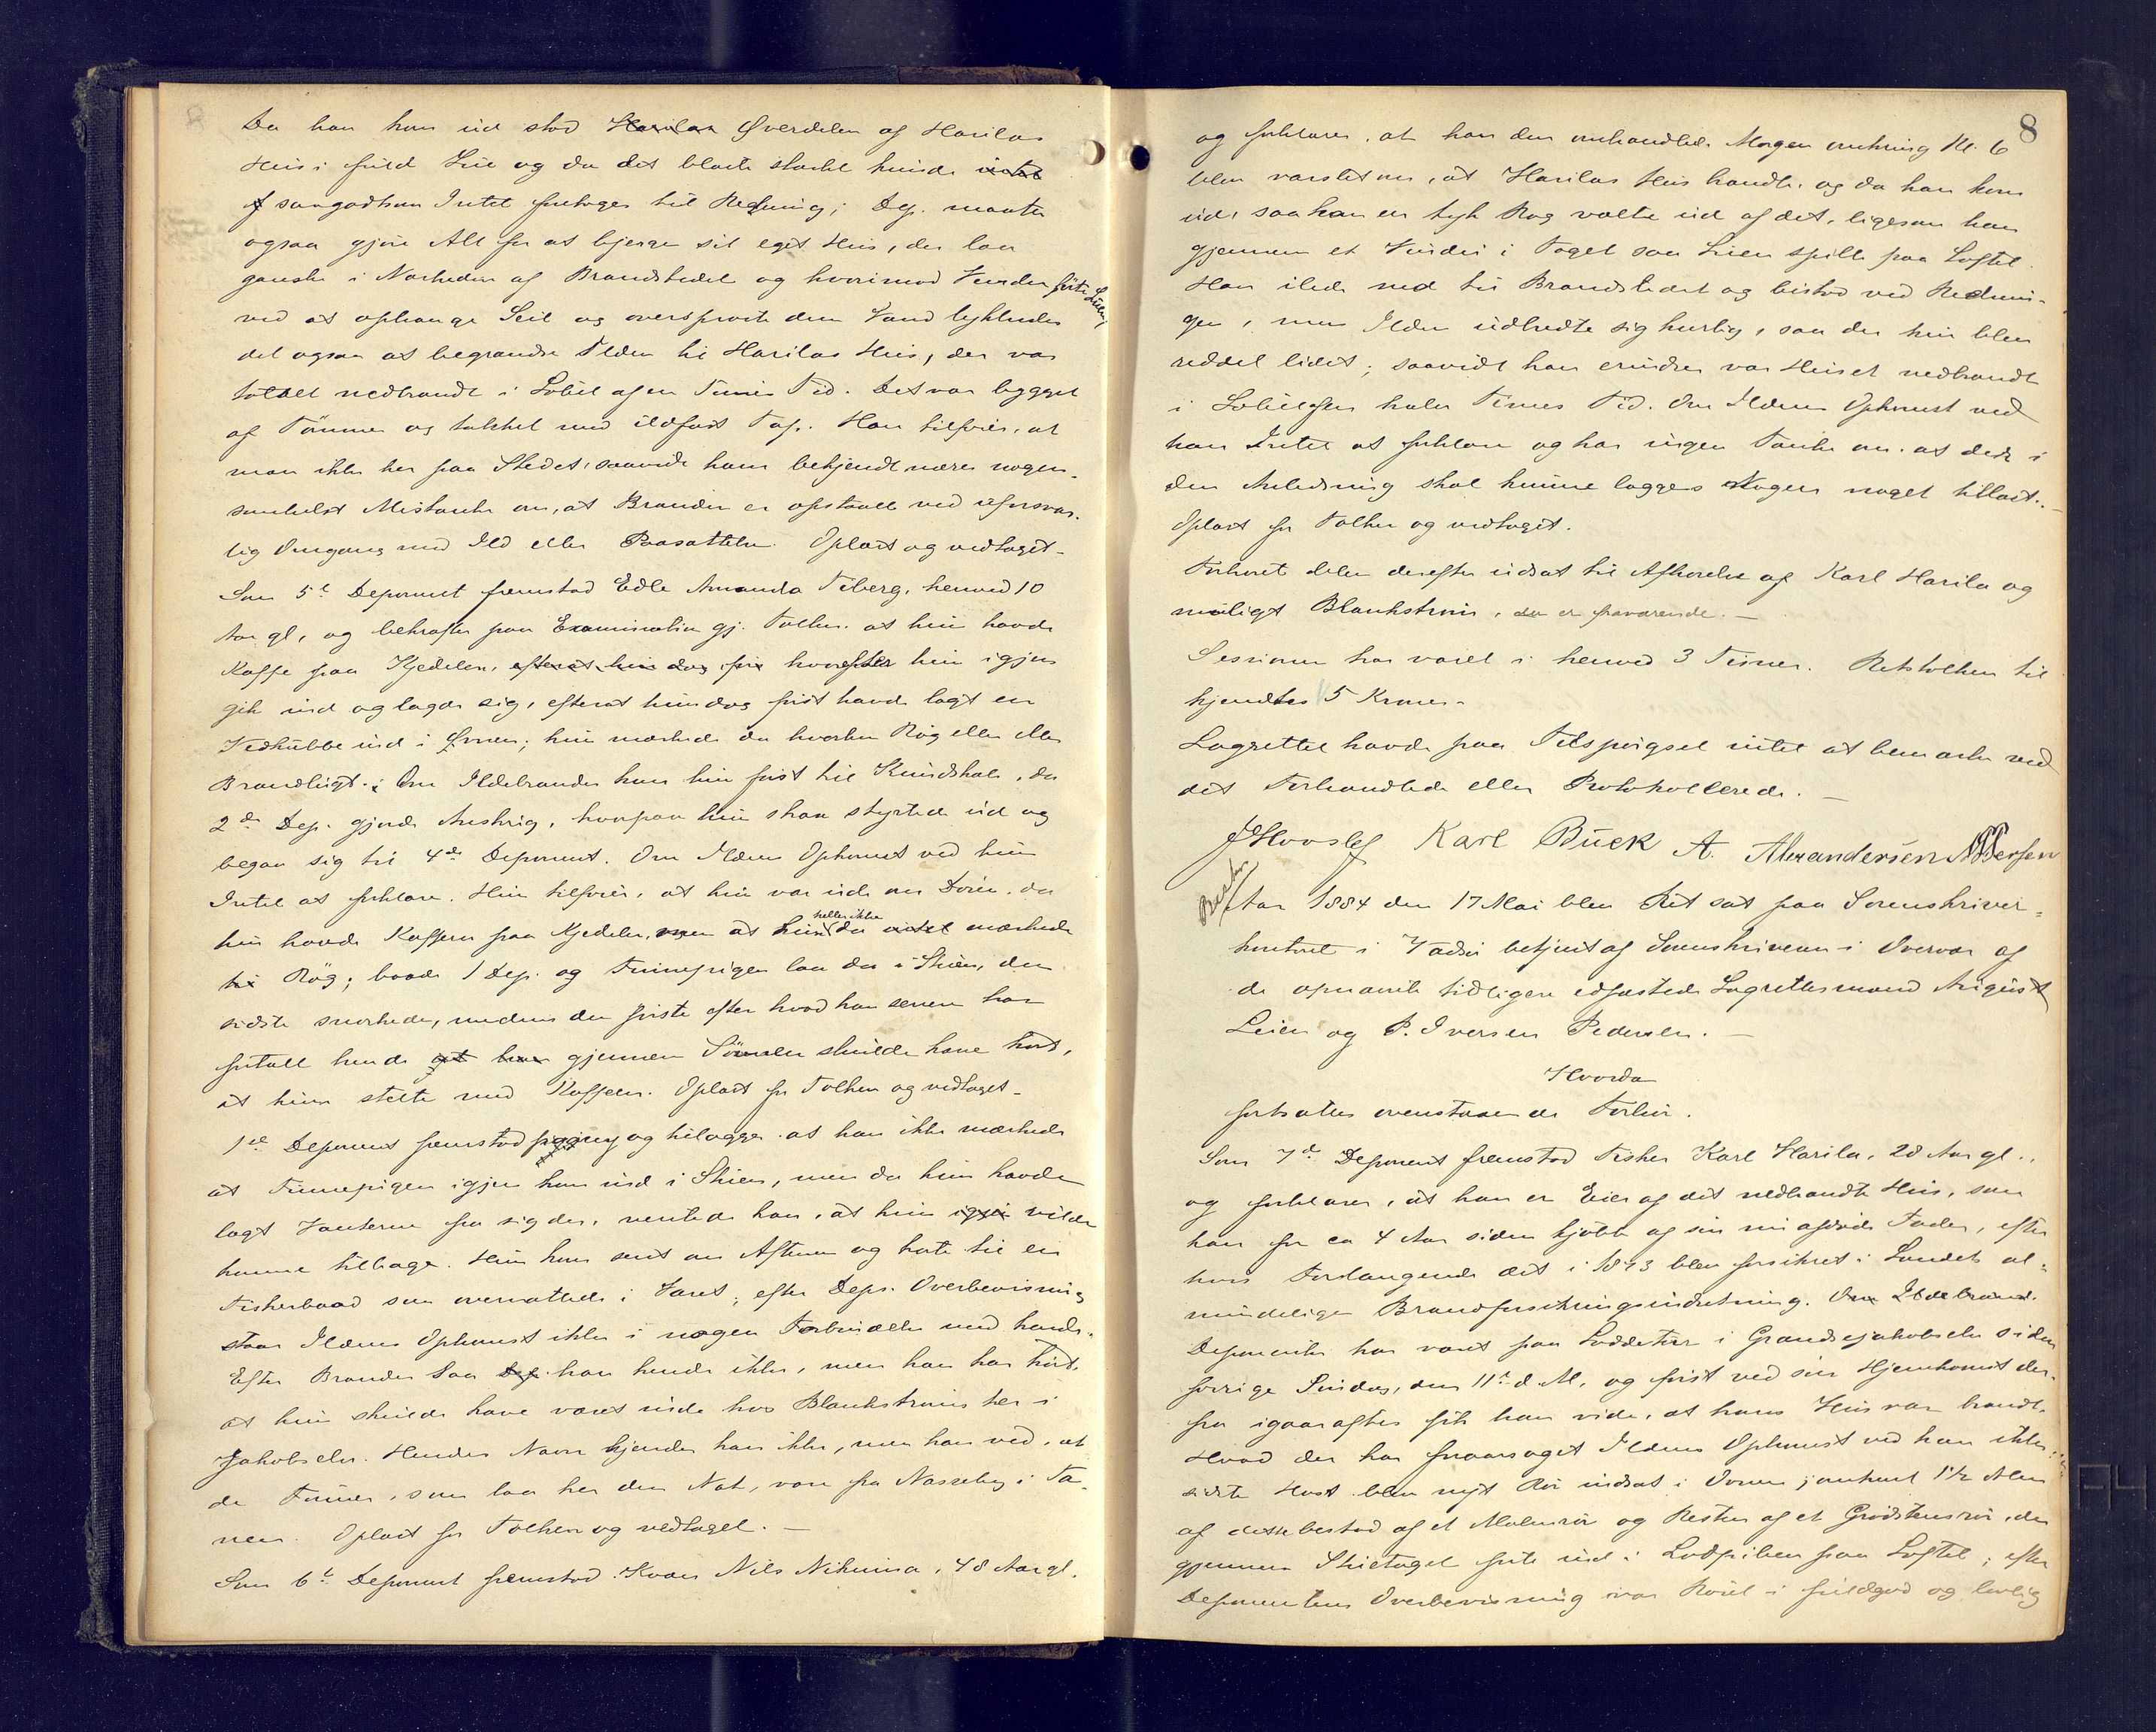 Da han kom ud stod Harilas Øverdelen af Harilas
Hus i fuld Lue og da det blæste stærkt kunde intet
saagodtsom Intet foretages til Redning; Dep. maatte
ogsaa gjøre Alt for at bjerge sit eget Hus, der laa
ganske i Nærheden af Brandstedet og hvorimod Vinden førte Luen;
ved at ophænge Seil og oversprøite dem Vand lykkedes
det ogsaa at begrændse Ilden til Harilas Hus, der var
totalt nedbrændt i Løbet af en Times Tid. Det var bygget
af Tømmer og takket med ildfast Tag. Han tilføier, at
man ikke her paa Stedet, saavidt ham bekjendt nærer nogen-
somhelst Mistanke om, at Branden er opstaaet ved uforsvar-
lig Omgang med Ild eller Paasættelse. Oplæst og vedtaget.
Som 5te Deponent fremstod Edle Amanda Tiberg, henved 10
Aar gl, og bekræfter paa Examination gj. Tolken at hun havde
Kaffe paa Kjedelen, efterat hun dog før hvorefter hun igjen
gik ind og lagde sig, efterat hun dog først havde lagt en
Vedkubbe ind i Ovnen; hun mærkede da hverken Røg eller
Brandlugt. Om Ildebranden kom hun først til Kundskab, da
2den Dep. gjorde Anskrig, hvorpaa hun strax styrtede ud og
begav sig til 4de Deponent. Om Ildens Opkomst ved hun
Intet at forklare. Hun tilføier, at hun var ude om Døren, da
hun havde Kaffeen paa Kjedelen, men at hun da heller ikke intet mærkede
til Røg; baade 1 Dep. og Finnepigen laa da i Stuen, den
sidste snorkede, medens den første efter hvad han senere har
fortalt hende at han gjennem Sømnen skulde have hørt,
at hun stelte med Kaffeen. Oplæst for Tolken og vedtaget.
1ste Deponent fremstod paany og tilægger at han ikke mærkede
at Finnepigen igjen kom ind i Stuen, men da hun havde
lagt Vanterne fra sig der, ventede han, at hun igjen vilde
komme tilbage. Hun kom sent om Aftenen og hørte til en
Fiskerbaad som overnattede i Været; efter Deps. Overbevisning
staar Ildens Opkomst ikke i nogen Forbindelse med hende.
Efter Branden saa Dep. han hende ikke, men han har hørt,
at hun skulde have været inde hos Blankstrøms her i
Jakobselv. Hendes Navn kjender han ikke, men han ved, at
de Finner, som laa her den Nat, vare fra Næsseby i Ta-
nen. Oplæst for Tolken og vedtaget.
Som 6te Deponent fremstod Kvæn Nils Nikumaa, 48 Aar gl.
8
og forklarer, at han den omhandlede Morgen omkring Kl. 6
blev varslet om, at Harilas Hus brændte, og da han kom
ud, saa han en tyk Røg vælte ud af det, ligesom han
gjennem et Vindu i Taget saa Luen spille paa Loftet.
Han ilede ned til Brandstedet og bistod ved Rednin-
gen, men Ilden udbredte sig hurtig, saa der kun blev
reddet lidet; saavidt han erindrer var Huset nedbrændt
i Løbet af en halv Times Tid. Om Ildens Opkomst ved
han Intet at forklare og har ingen Tanke om, at der i
den Anledning skal kunne lægges Nogen noget tillast.
Oplæst for Tolken og vedtaget.
Forhøret blev derefter udsat til Afhørelse af Karl Harila og
muligt Blankstrøm, der er fraværende.
Sessionen har varet i henved 3 Timer. Retstolken til
kjendtes 5 Kroner.
Lagrettet havde paa Tilspørgsel intet at bemærke ved
det Forhandlede eller Protokollerede.
JHovslef Karl Buck A. Alexandersen
Aar 1884 den 17 Mai blev Ret sat paa Sorenskriver-
kontoret i Vadsø betjent af Sorenskriveren i Overvær af
de opnævnte tidligere edfæstede Lagrettesmænd August
Leier og P. Iversen Pedersen.
Hvorda
fortsattes ovenstaaende Forhør.
Som 7de Deponent fremstod Fisker Karl Harila, 28 Aar gl.,
og forklarer, at han er Eier af det nedbrændte Hus, som
han for ca 4 Aar siden kjøbte af sin nu afdøde Fader, efter
hvis Forlangende det i 1873 blev forsikret i Landets al-
mindelige Brandforsikringsindretning. Om Ildebrand.
Deponenten har været paa Loddetur i Grændsejakobselv siden
forrige Søndag, den 11te d. M, og først ved sin Hjemkomst der-
fra igaaraftes fik han vide, at hans Hus var brændt.
Hvad der har foraarsaget Ildens Opkomst ved han ikke;
sidste Høst blev nyt Rør indsat i Ovnen; omkrent 1½ Alen
af dette bestod af et Malmrør og Resten af et Gradstensrør, der
gjennem Stuetaget førte ind i Ludpiben paa Loftet; efter
Deponentens Overbevisning var Røret i fuldgod og lovlig